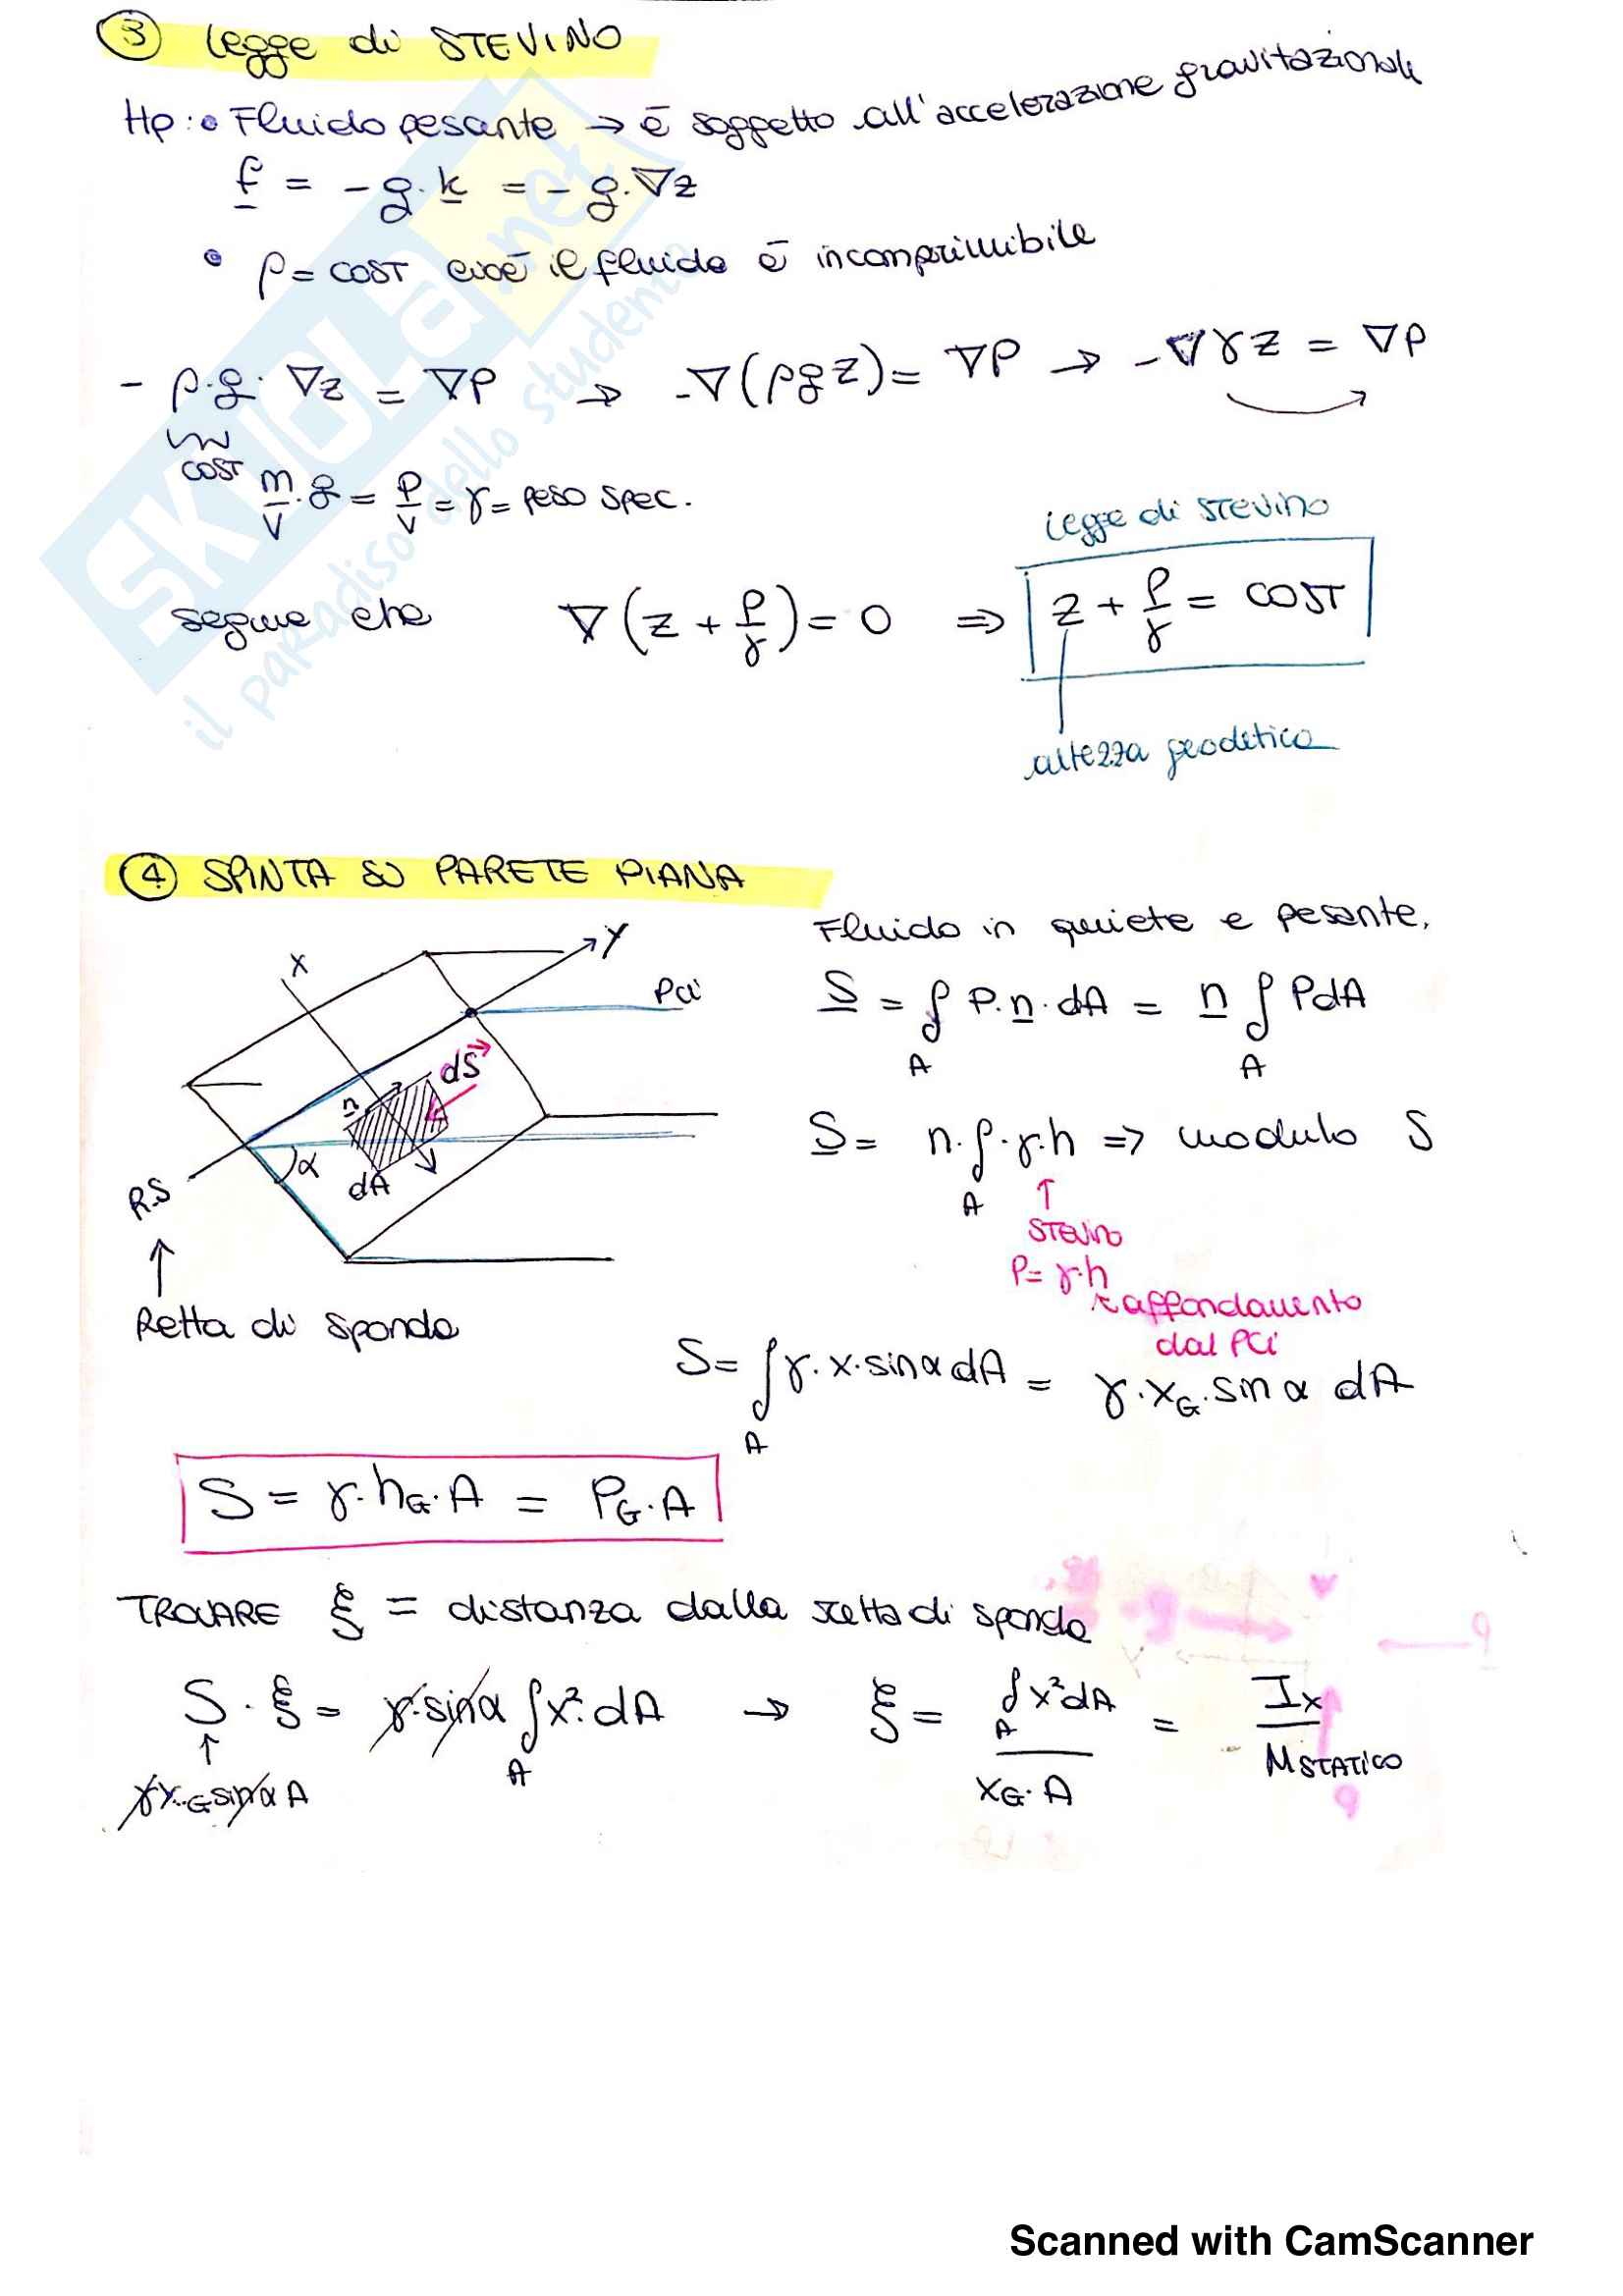 3 Legge di STEVINO
Hp: • Fluido pesante → è soggetto all'accelerazione gravitazionale
f = - g · k = - g · ∇z
• ρ = COST cioè il fluido è incomprimibile
- ρ · g · ∇z = ∇P → -∇(ρgz) = ∇P → -∇γz = ∇P
COST
m/V · g = P/V = γ = peso spec.
Legge di STEVINO
segue che ∇(z + P/γ) = 0 ⇒ z + P/γ = COST
altezza geodetica
4 SPINTA SU PARETE PIANA
Fluido in quiete e pesante.
S = ∫ P · n · dA = n ∫ P dA
A A
X Y Pci
dS
n
α dA
R.S
Retta di sponda
S = n · ∫ · γ · h ⇒ modulo S
A ↑
STEVINO
P = γ · h
affondamento
dal PCi
S = ∫ γ · x · sin α dA = γ · xG · sin α dA
A
S = γ · hG · A = PG · A
TROVARE ξ = distanza dalla retta di sponda
S · ξ = γ · sin α ∫ x² · dA → ξ = ∫ x² dA / xG · A = Ix / M STATICO
A A
↑
γ x G sin α A
SKUOLA.net
il paradiso dello studente
Scanned with CamScanner